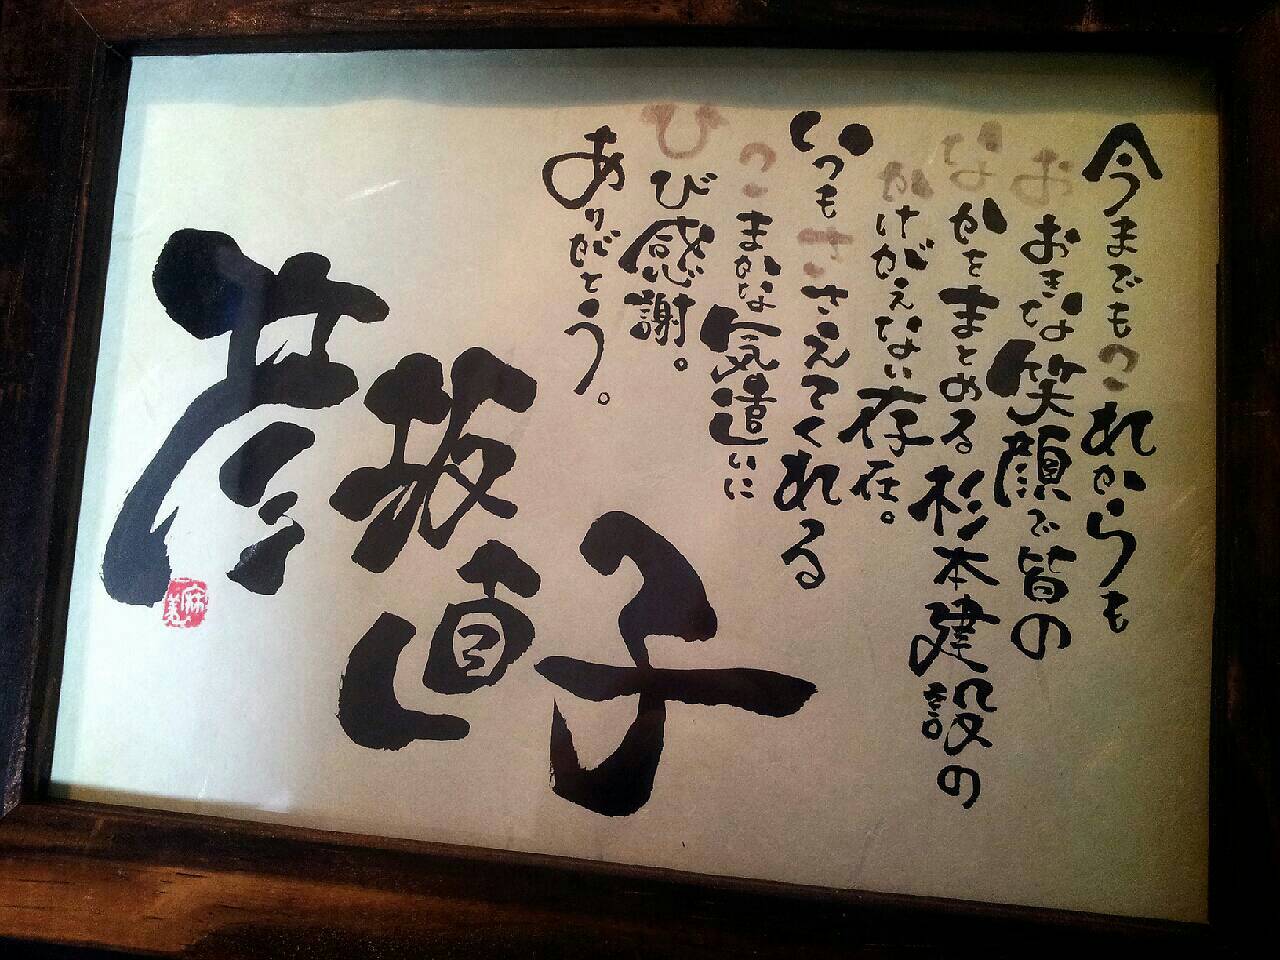 今までもこれからも
おおきな笑顔で皆の
なかをまとめる杉本建設の
かけがえない存在。
いつもささえてくれる
こまかな気遣いに
ひび感謝。
ありがとう。
彦坂直子
麻美